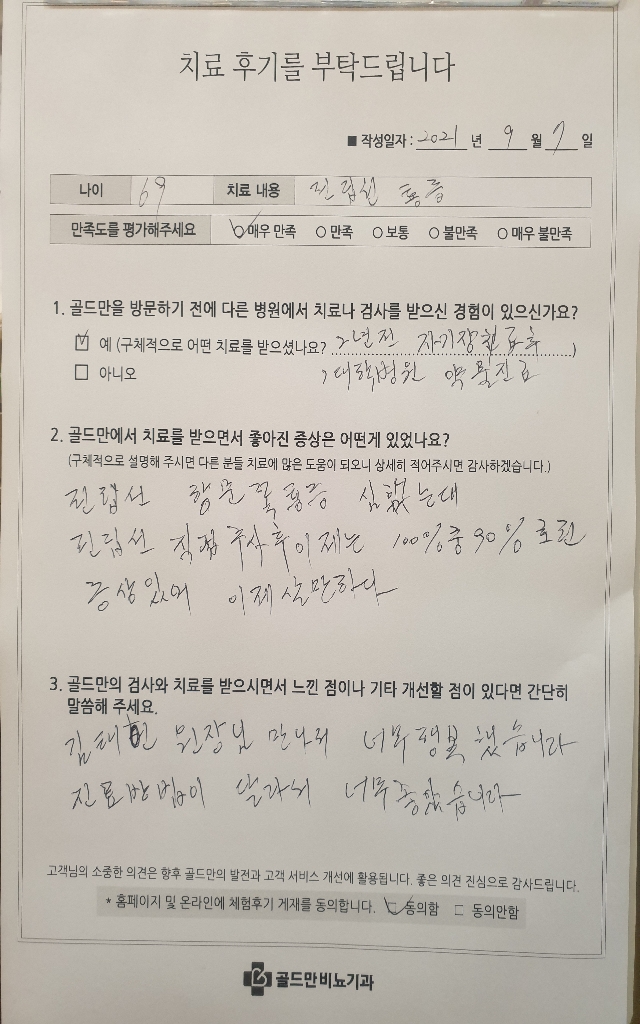 치료 후기를 부탁드립니다
■ 작성일자 : 2021 년 9 월 7 일
나이 69 치료 내용 전립선 통증
만족도를 평가해주세요 매우 만족 만족 보통 불만족 매우 불만족
1. 골드만을 방문하기 전에 다른 병원에서 치료나 검사를 받으신 경험이 있으신가요?
예 (구체적으로 어떤 치료를 받으셨나요? 2년전 자기장 치료후 )
아니오 , 대학병원 약물진료
2. 골드만에서 치료를 받으면서 좋아진 증상은 어떤게 있었나요?
(구체적으로 설명해 주시면 다른 분들 치료에 많은 도움이 되오니 상세히 적어주시면 감사하겠습니다.)
전립선 항문쪽 통증 심했는데
전립선 직접 주사후 이제는 100%중 90% 호전
증상있어 이제 살만하다
3. 골드만의 검사와 치료를 받으시면서 느낀 점이나 기타 개선할 점이 있다면 간단히
말씀해 주세요.
김태헌 원장님 만나서 너무 행복했습니다
진료방법이 달라서 너무 좋았습니다
고객님의 소중한 의견은 향후 골드만의 발전과 고객 서비스 개선에 활용됩니다. 좋은 의견 진심으로 감사드립니다.
* 홈페이지 및 온라인에 체험후기 게재를 동의합니다. 동의함 동의안함
골드만비뇨기과